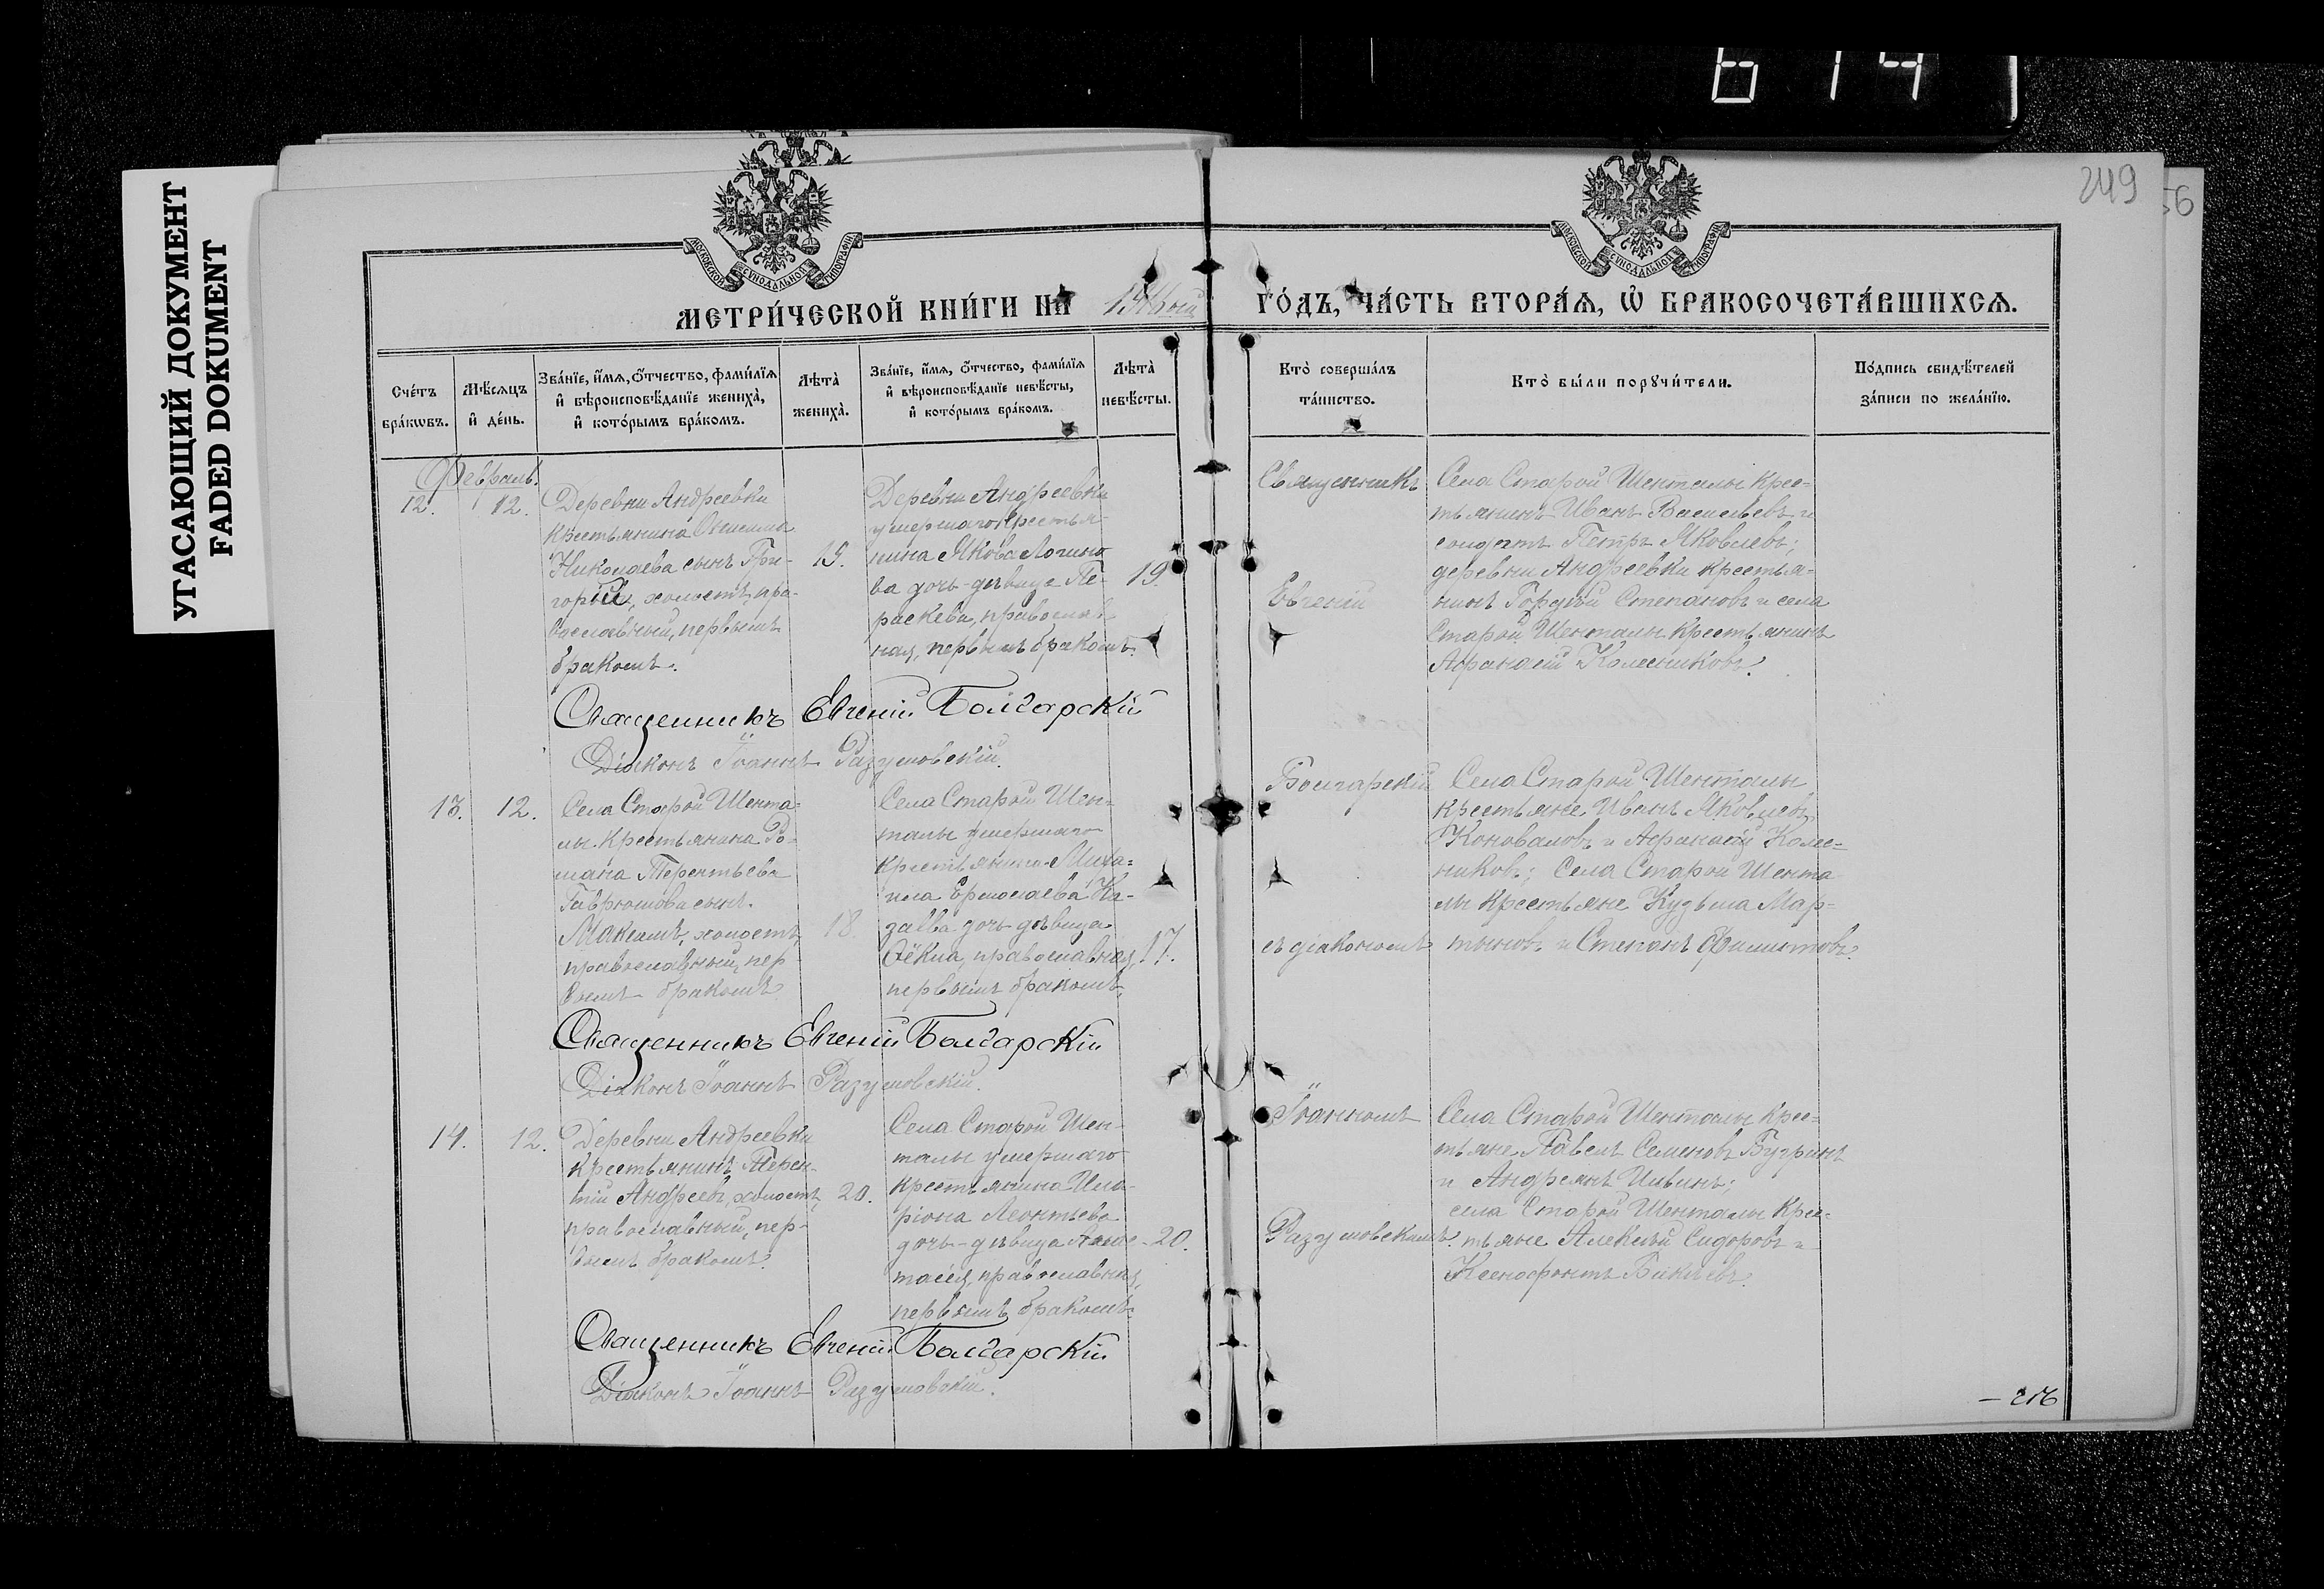 614
УГАСАЮЩИЙ ДОКУМЕНТ
FADED DOKUMENT
249
56
МОСКОВСКОЙ СѴНОДАЛЬНОЙ ТИПОГРАФІИ
МОСКОВСКОЙ СѴНОДАЛЬНОЙ ТИПОГРАФІИ
МЕТРИ́ЧЕСКОЙ КНИ́ГИ НА
ГО́ДЪ, ЧА́СТЬ ВТОРА́Я, Ѿ БРАКОСОЧЕТА́ВШИХСЯ.
Сче́тъ бра́кѡвъ.
Мѣ́сяцъ и҆ де́нь.
Зва́нїе, и҆́мя, ѻ҆́тчество, фами́лїя и҆ вѣроисповѣ́данїе жениха̀, и҆ кото́рымъ бра́комъ.
Лѣта̀ жениха̀.
Зва́нїе, и҆́мя, ѻ҆́тчество, фами́лїя и҆ вѣроисповѣ́данїе невѣ́сты, и҆ кото́рымъ бра́комъ.
Лѣта̀ невѣ́сты.
Кто̀ соверша́лъ та́инство.
Кто̀ бы́ли порꙋчи́тели.
По́дпись свидѣ́телей за́писи по жела́нїю.
Февраль.
12.
12.
Деревни Андреевки
крестьянина
Николаева сынъ Гри-
горій, холостъ, пра-
вославный, первымъ
бракомъ.
19.
Деревни Андреевки
умершаго крестья-
нина Якова Логино
ва дочь-дѣвица Па-
раскева, православ-
ная, первымъ бракомъ.
19.
Священникъ
Евгеній
Села Старой Шенталы крес-
тьянинъ Иванъ Васильевъ и
солдатъ Петръ Яковлевъ;
деревни Андреевки крестья-
нинъ Гордѣй Степановъ и села
Старой Шенталы крестьянинъ
Афанасій Колесниковъ.
Священникъ Евгеній Болгарскій
Діаконъ Іоаннъ Разумовскій.
13.
12.
Села Старой Шента-
лы крестьянина Ро-
мана Терентьева
Гаврюшова сынъ
Максимъ, холостъ,
православный, пер-
вымъ бракомъ
18.
Села Старой Шен-
талы умершаго
крестьянина Миха-
ила Ермолаева Ка-
заева дочь дѣвица
Ѳёкла, православная,
первымъ бракомъ.
17.
Болгарскій
съ діакономъ
Села Старой Шенталы
крестьяне Иванъ Яковлевъ
Коноваловъ и Афанасій Колес-
никовъ; Села Старой Шента
лы крестьяне Кузьма Мар-
тыновъ и Степанъ Филиповъ.
Священникъ Евгеній Болгарскій
Діаконъ Іоаннъ Разумовскій.
14.
12.
Деревни Андреевки
крестьянинъ Терен-
тій Андреевъ, холостъ,
православный, пер-
вымъ бракомъ.
20.
Села Старой Шен-
талы умершаго
крестьянина Ила-
ріона Леонтьева
дочь-дѣвица Анас-
тасія, православная,
первымъ бракомъ.
20.
Іоанномъ
Разумовскимъ.
Села Старой Шенталы крес-
тьяне Павелъ Семеновъ Бугринъ
и Андреянъ Ильинъ;
села Старой Шенталы крес-
тьяне Алексѣй Сидоровъ и
Ксенофонтъ
Священникъ Евгеній Болгарскій
Діаконъ Іоаннъ Разумовскій.